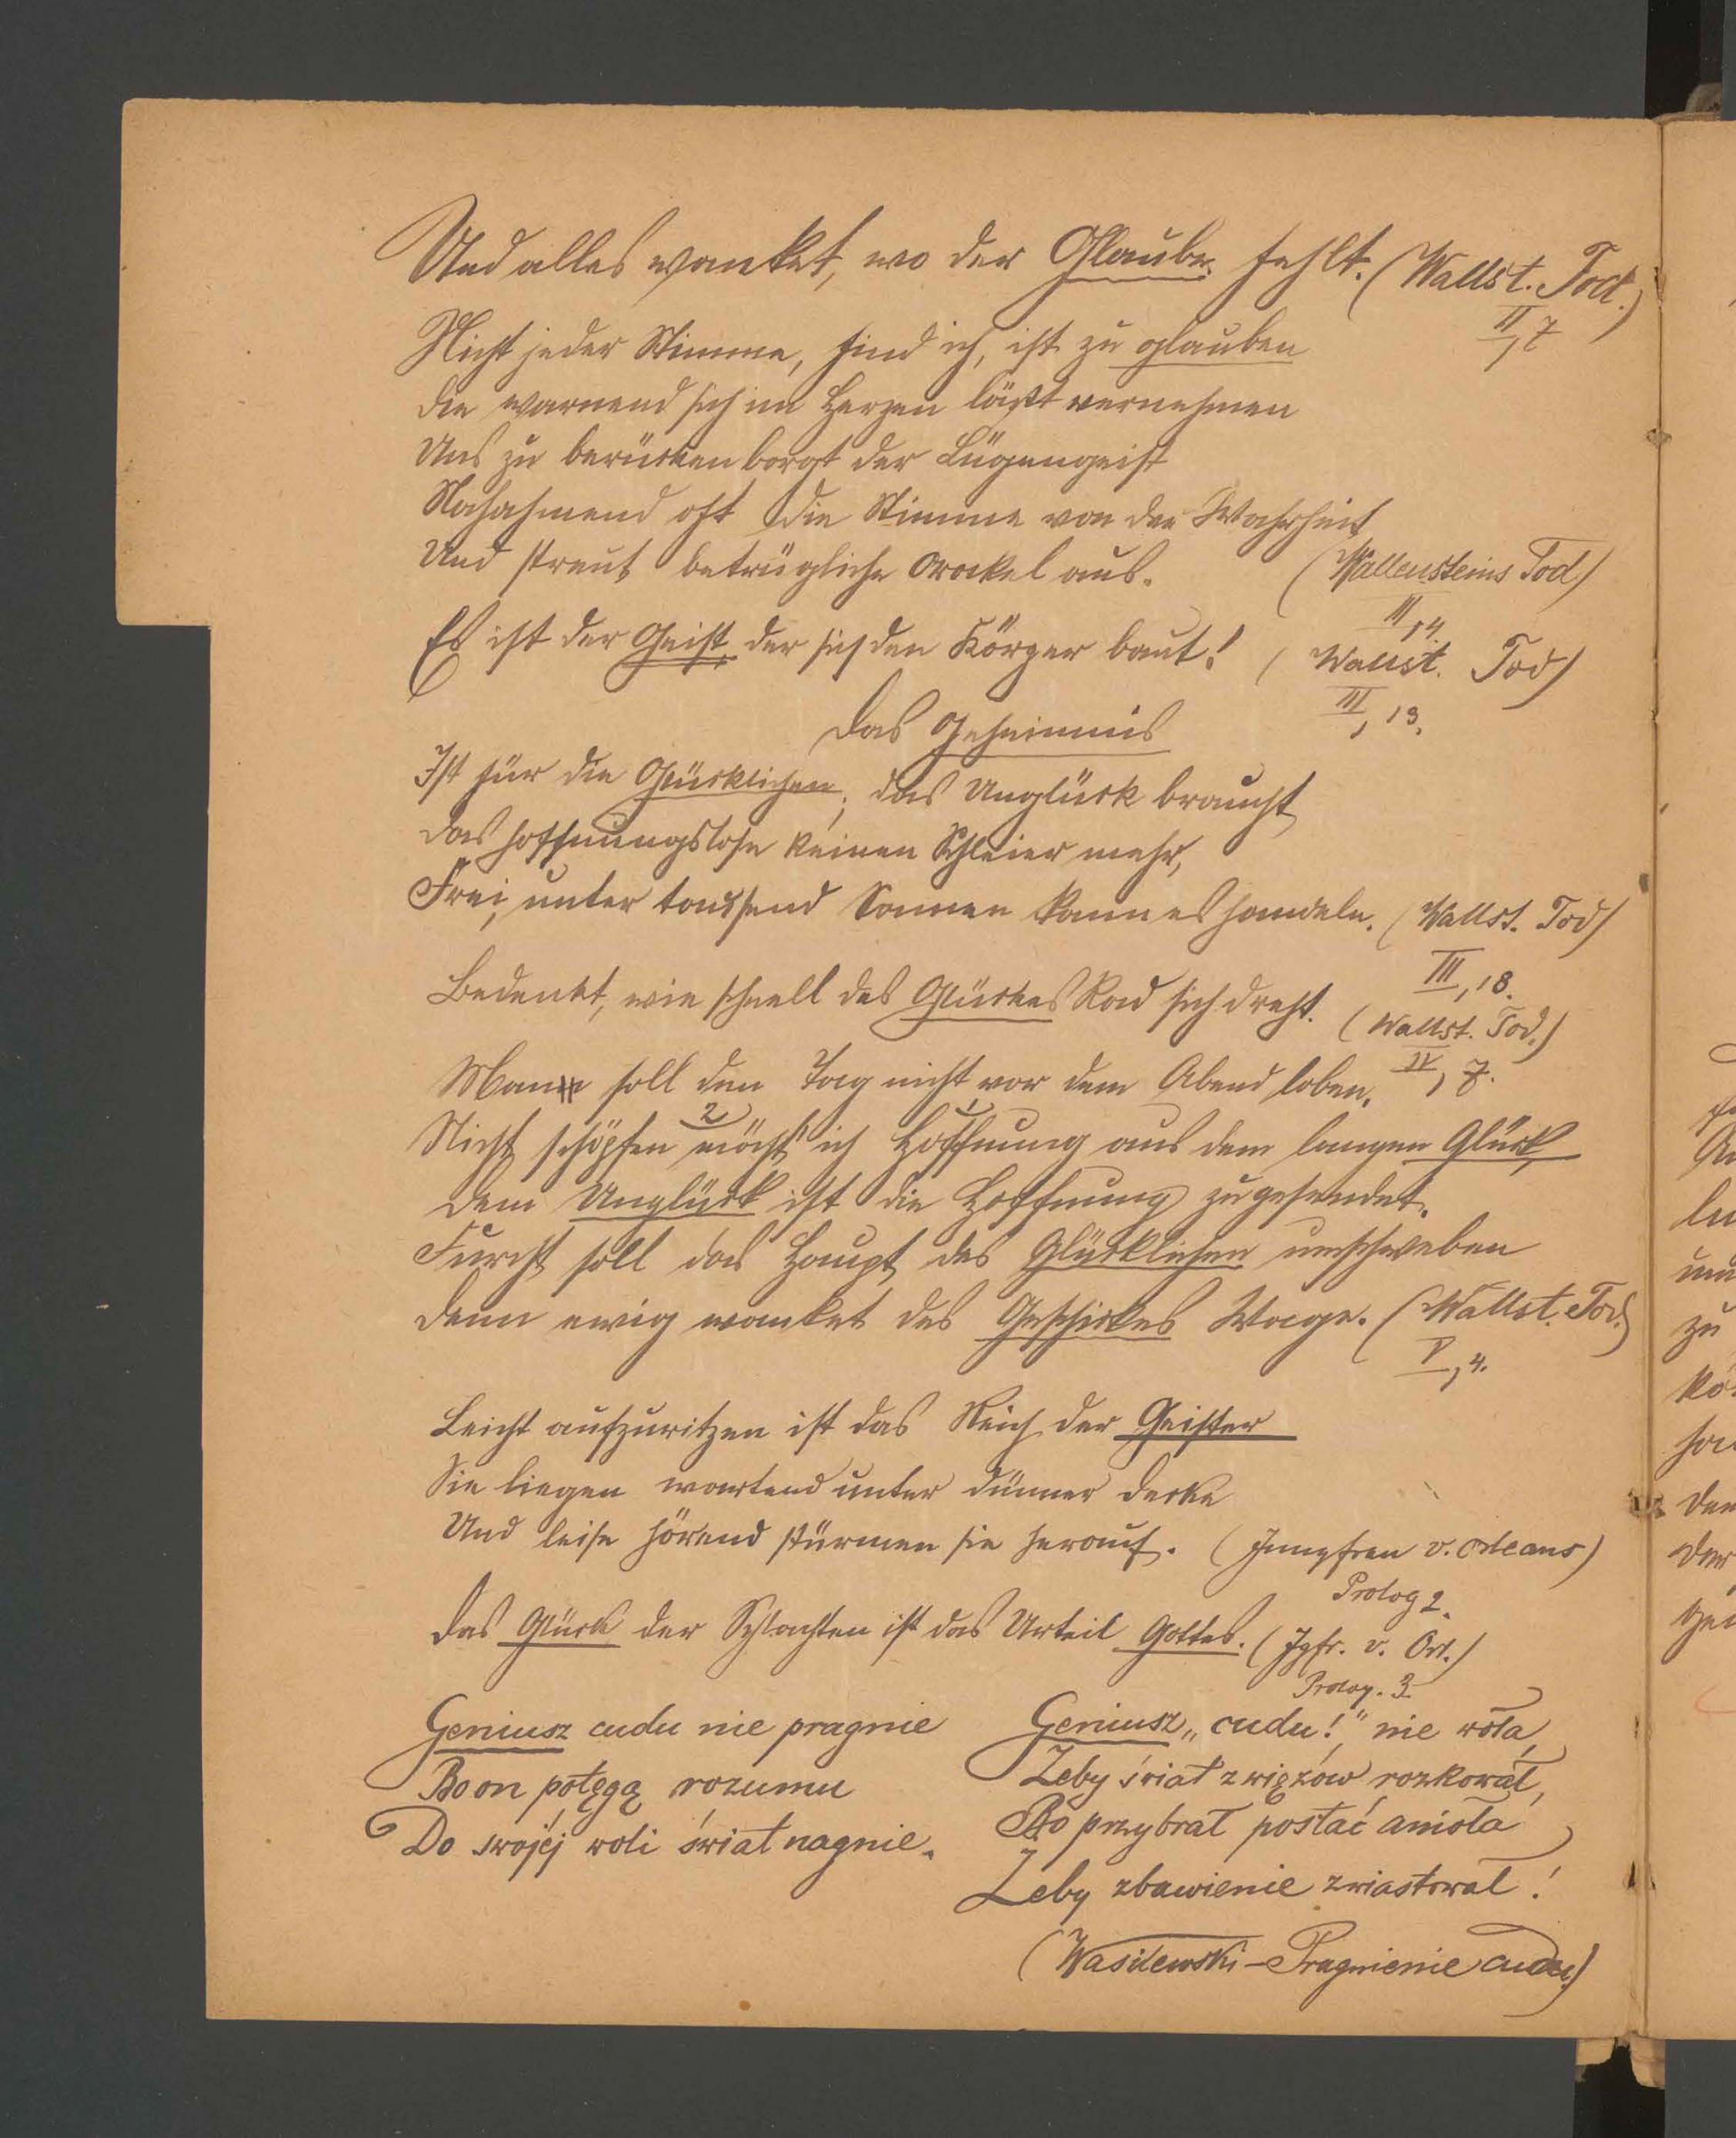 Und alles wanket, wo der Glaube fehlt. (Wallst. Tod.)
II, 7
Nicht jeder Stimme, find ich, ist zu glauben
die warnend sich im Herzen läßt vernehmen
Uns zu berücken borgt der Lügengeist
Nachahmend oft die Stimme von der Wahrheit
Und streut betrügliche Orakel aus. (Wallensteins Tod)
Es ist der Geist, der sich den Körper baut! (Wallst. Tod)
III, 13.
Das Geheimnis
Ist für die Glücklichen; das Unglück braucht
das hoffnungslose keinen Schleier mehr,
Frei, unter tausend Sonnen kann es handeln. (Wallst. Tod)
III, 18.
Bedenkt, wie schnell des Glückes Rad sich dreht. (Wallst. Tod.)
IV, 7.
Man soll den Tag nicht vor dem Abend loben.
Nicht schöpfen möcht' ich Hoffnung aus dem langen Glück,
dem Unglück ist die Hoffnung zugesendet.
Furcht soll das Haupt des Glücklichen umschweben
denn ewig wanket des Geschickes Wage. (Wallst. Tod.)
V, 4.
Leicht aufzuritzen ist das Reich der Geister
Sie liegen wartend unter dünner decke
Und leise hörend stürmen sie herauf. (Jungfrau v. Orleans)
Prolog 2.
das Glück der Schlachten ist das Urteil Gottes. (Jgfr. v. Orl.)
Prolog. 3.
Geniusz cudu nie pragnie
Bo on potęgą rozumu
Do swojéj woli świat nagnie.
Geniusz „cudu!" nie woła,
Żeby świat z więzów rozkował,
Bo przybrał postać anioła
Żeby zbawienie zwiastował!
(Wasilewski – Pragnienie cudu)